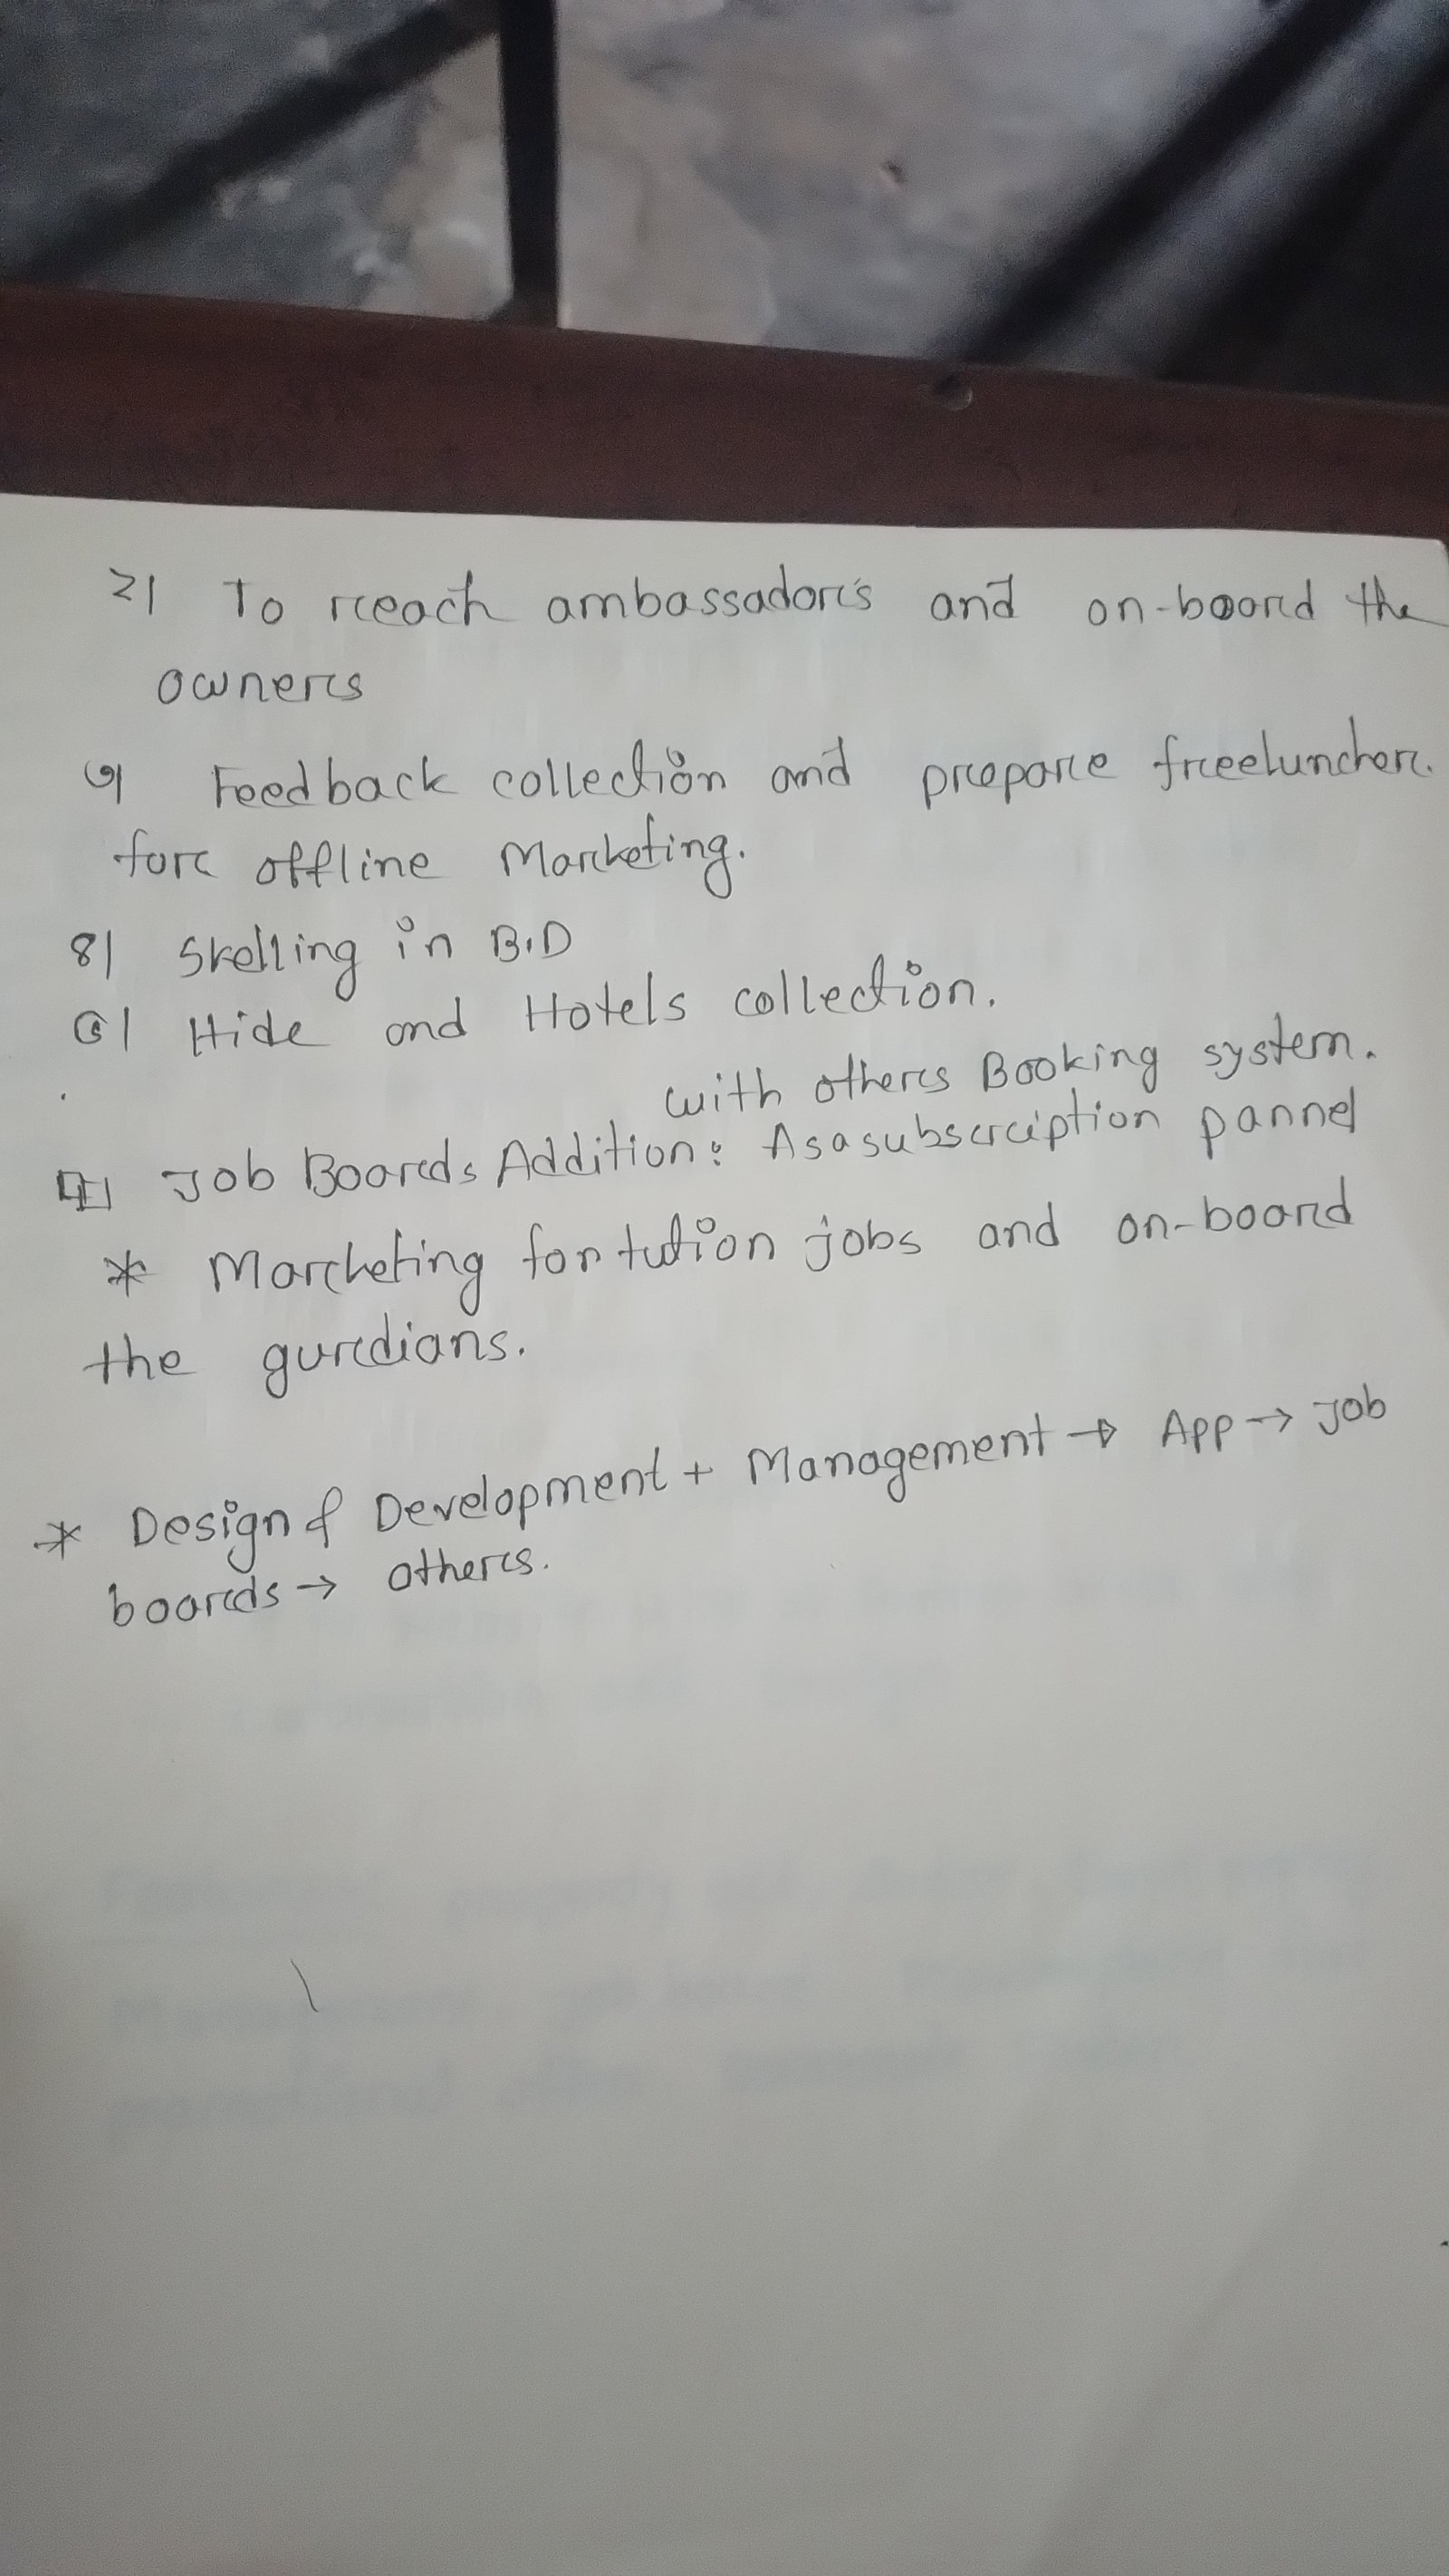 ২। To reach ambassador's and on-board the
owners
৩। Feedback collection and prepare freeluncher.
for offline Marketing.
৪। Skelling in B.D
৫। Hide and Hotels collection.
with others Booking system.
Job Boards Addition: As a subscription pannel
* Marketing for tution jobs and on-board
the gurdians.
* Design & Development + Management → App → Job
boards → others.